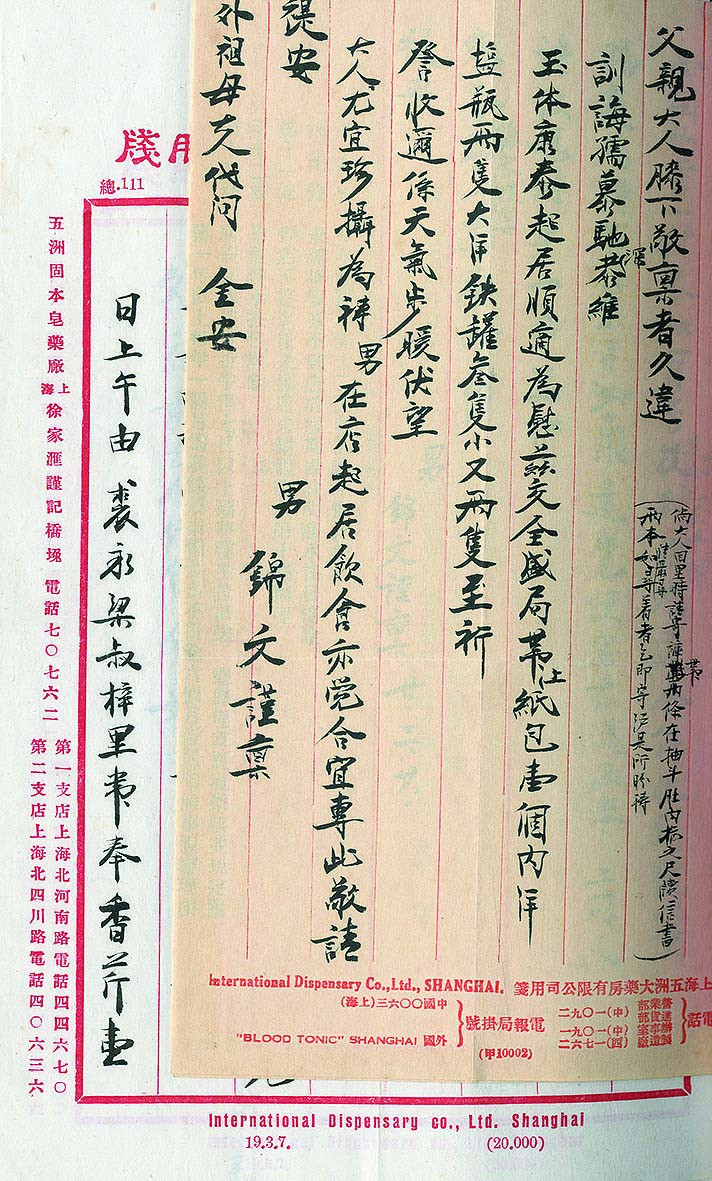 父親大人膝下敬稟者久違
訓誨孺慕馳深恭維
玉体康泰起居順適為慰茲交全盛局帶上紙包壹個内洋
塩瓶兩隻大洋鉄罐叁隻小又兩隻至祈
詧收邇係天氣步暖伏望
大人尤宜珍攝為禱男在店起居飲食亦覺合宜專此敬請
禔安
男 錦文謹稟
外祖母大人代问 金安
上海五洲大藥房有限公司用箋
International Dispensary Co., Ltd., SHANGHAI.
電話
營業部
進貨部
(中)一〇九二
辦事室
(中)一〇九一
製造廠
(四)一六七二
電報局掛號
中國〇〇六三(上海)
外國 "BLOOD TONIC" SHANGHAI
(甲10002)
用牋
總.111
日上午由裘永梁叔梓里帶奉香芹壹
五洲固本皂藥廠 上海徐家滙謹記橋堍 電話七〇七六二
第一支店上海北河南路電話四四六七〇
第二支店上海北四川路電話四〇六三六
International Dispensary co., Ltd. Shanghai
19.3.7.
(20.000)